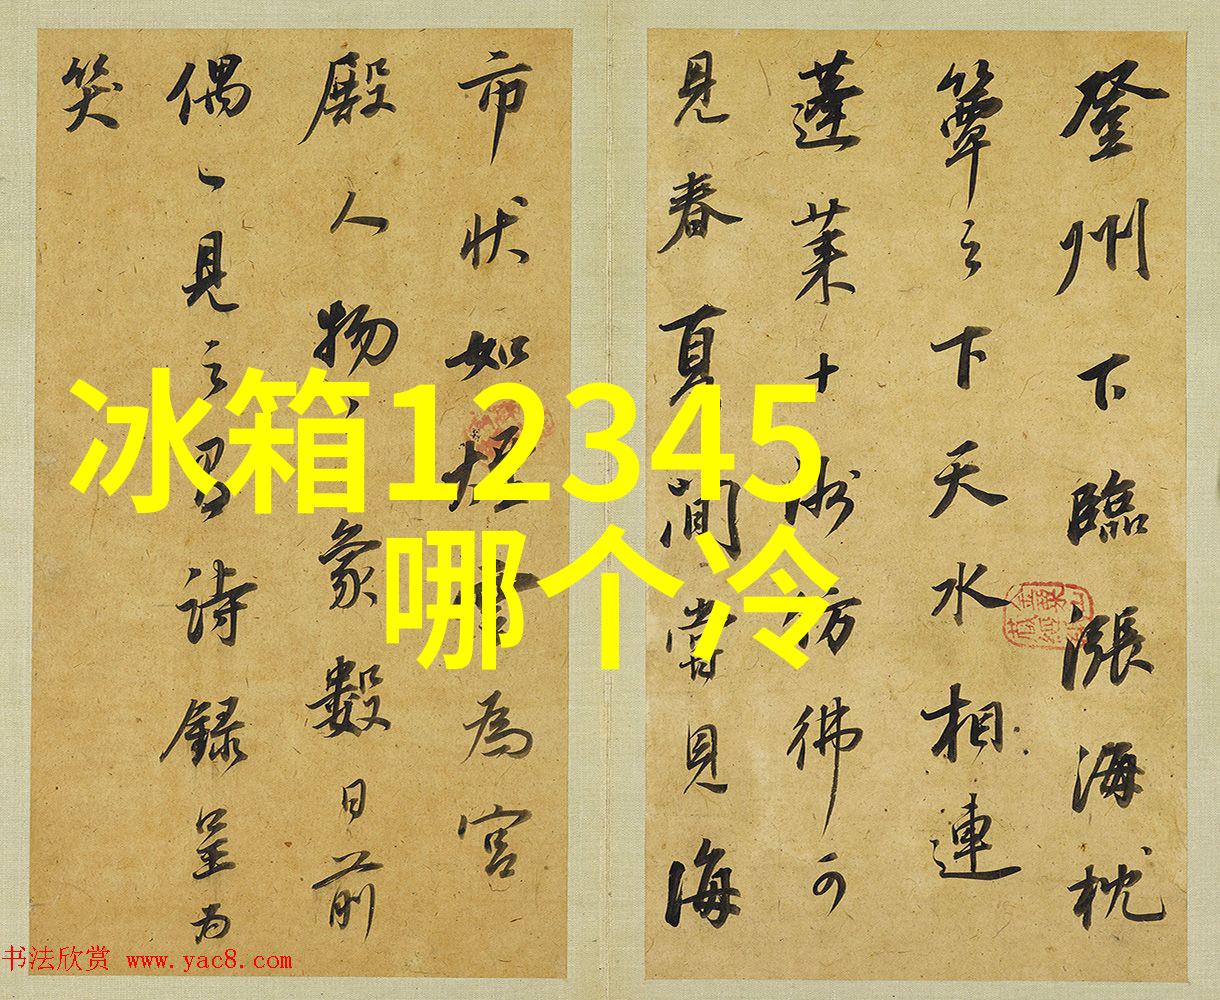 冰箱12345
哪个冷
登州下臨漲海枕
簟之下天水相連
蓬萊十洲彷彿可
見春夏間嘗見海
市狀如為宮
殿人物象數日前
偶一見之有詩錄呈為
笑
书法欣赏 www.yac8.com